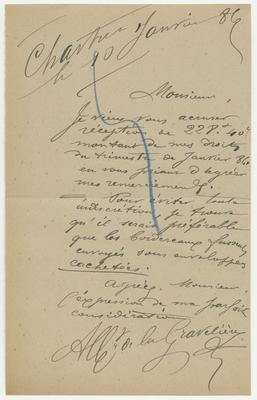 Chartres 10 Janvier 86
Monsieur,
Je viens vous accuser
réception de 22 f. 40 c
montant de mes droits
du trimestre de Janvier 86
en vous priant d'agréer
mes remerciements.
Pour éviter toute
indiscrétion je trouve
qu'il serait préférable
que les bordereaux fussent
envoyés sous enveloppes
cachetées.
Agréez, Monsieur,
l'expression de ma parfaite
considération
de la Gravelière